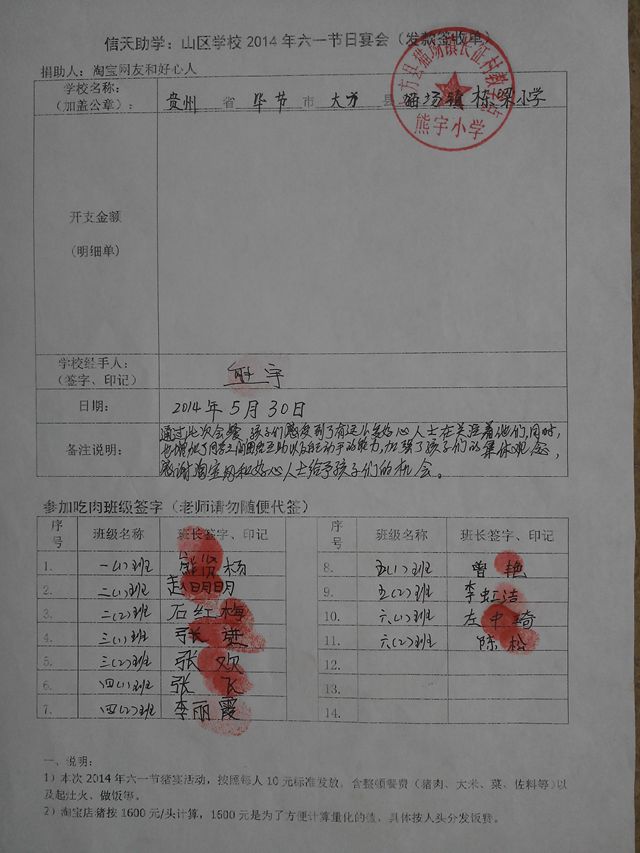 信天助学：山区学校 2014 年六一节日宴会（发款签收单）
捐助人：淘宝网友和好心人
学校名称：
（加盖公章）：
贵州 省 毕节 市 大方 县 猫场镇 栋梁小学
方县猫场镇长征村教学点
熊宇小学
开支金额
(明细单)
学校经手人：
（签字、印记）
熊宇
日期：
2014 年 5 月 30 日
备注说明：
通过此次会餐，孩子们感受到了有这么多好心人士在关注着他们，同时，
也增加了同学之间团结互助以及自己动手的能力，加强了孩子们的集体观念，
感谢淘宝网和好心人士给予孩子们的机会。
参加吃肉班级签字（老师请勿随便代签）
序号 班级名称 班长签字、印记 序号 班级名称 班长签字、印记
1. 一(1)班 熊贤杨 8. 五(1)班 曾艳
2. 二(1)班 赵明明 9. 五(2)班 李虹洁
3. 二(2)班 石红梅 10. 六(1)班 左中琦
4. 三(1)班 张进 11. 六(2)班 陈松
5. 三(2)班 张欢 12.
6. 四(1)班 张飞 13.
7. 四(2)班 李丽霞 14.
一、说明：
1）本次 2014 年六一节猪宴活动，按照每人 10 元标准发放，含整顿餐费（猪肉、大米、菜、佐料等）以
及起灶火、做饭等。
2）淘宝店猪按 1600 元/头计算，1600 元是为了方便计算量化的值，具体按人头分发饭费。